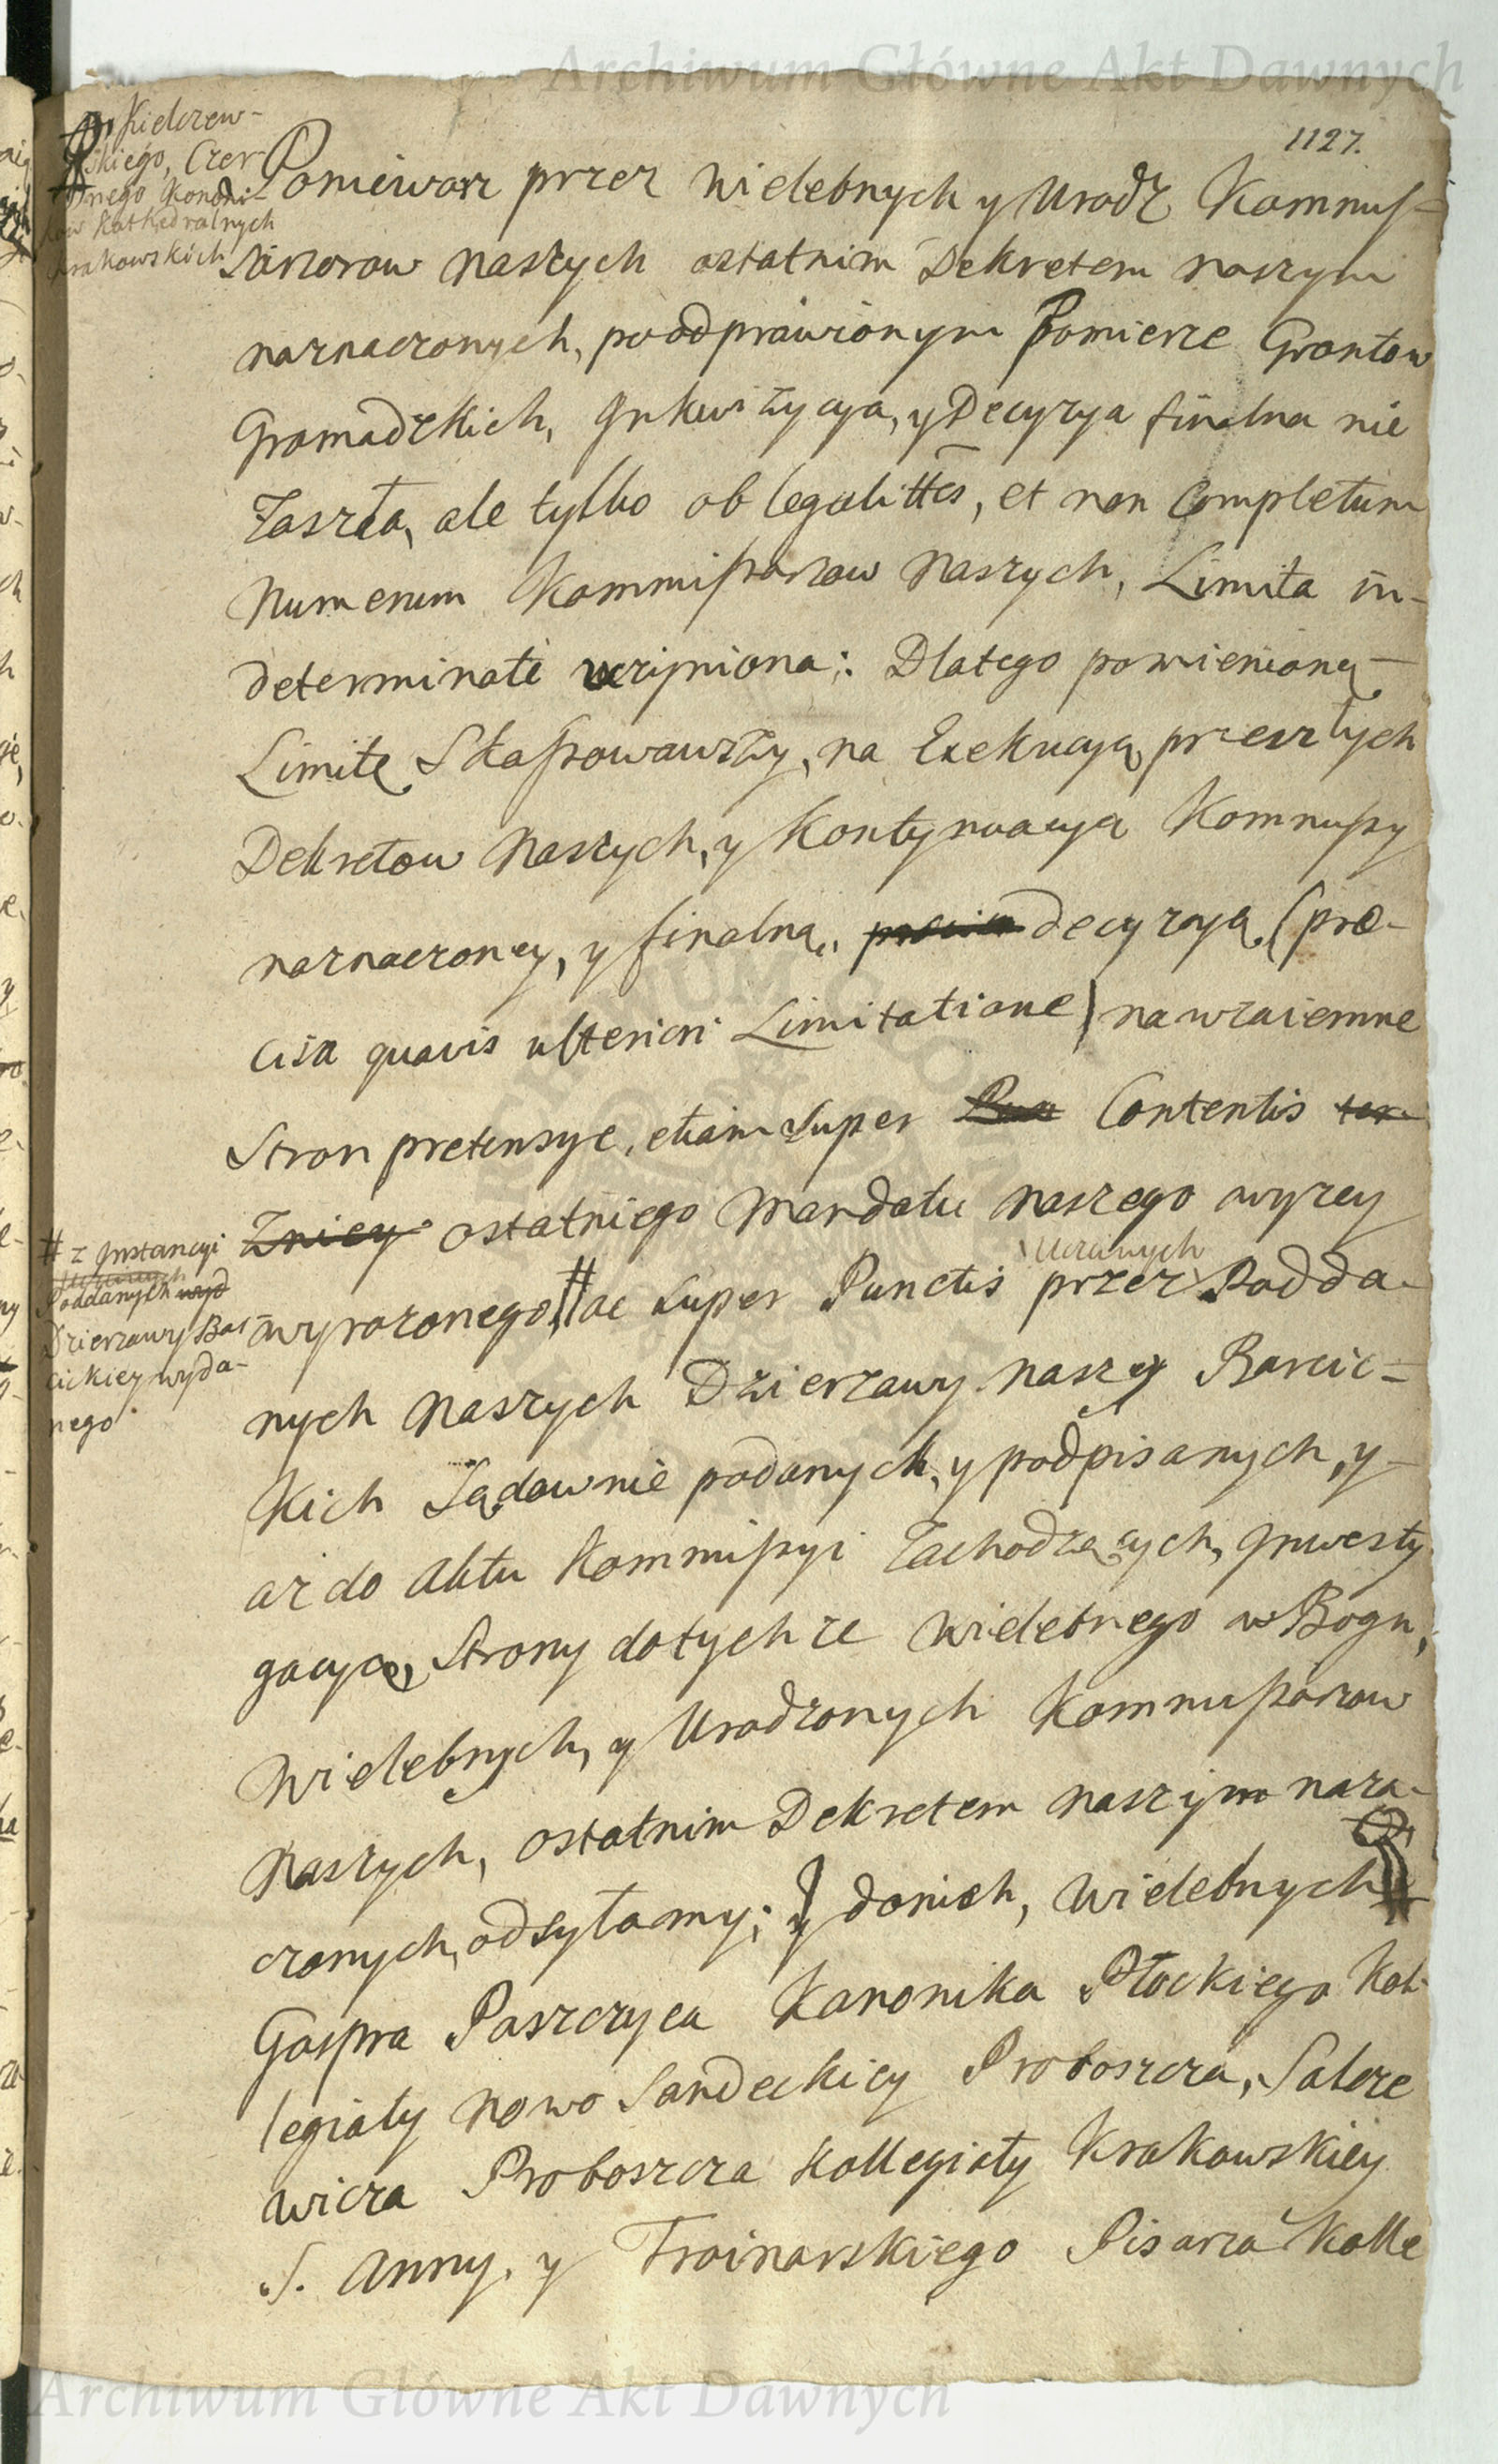 Archiwum Główne Akt Dawnych
1127.
Kielczew-
skiego, Czer-
nego Kononi-
kow Kathedralnych
Krakowskich
Poniewasz przez Wielebnych y Urodz Kommis-
sarzorow naszych ostatnim Dekretem naszym
naznaczonych, po odprawionym Pomierze Grontow
Gromadzkich, Inkwizycya, y Decyzya finalna nie
zaszła, ale tylko ob legalittes, et non Completum
Numerum Kommissarzow Naszych, Limita in-
determinate uczyniona: Dlatego pomienioną
Limitę Skassowawszy, na Exekucyą przeszłych
Dekretow Naszych, y Kontynuacyą Kommissy
naznaczoney, y finalną decyzyą (prae-
cisa quavis ulteriori Limitatione) na wzaiemne
Stron pretensye, etiam Super Contentis
zniey ostatniego Mandatu naszego wyzey
# z Instancyi
Poddanych
Dzierzawy Bar
cickiey wyda-
nego
uczonych
wyrazonego # ac super Punctis przez Podda-
nych Naszych Dzierzawy naszey Barcic-
kich Sądownie podanych, y podpisanych, y
az do Aktu Kommissyi zachodzących, Inwesty
gacye, Strony dotychze Wielebnego w Bogu,
Wielebnych, y Urodzonych Kommissarzow
Naszych, ostatnim Dekretem naszym nazna-
czonych, odsyłamy; y donich, Wielebnych
Gaspra Paszczyca Kanonika Płockiego Kol-
legiaty Nowo Sandeckiey Proboszcza, Salcze
wicza Proboszcza Kollegiaty Krakowskiey
S. Anny, y Troinarskiego Pisarza Kolle
Archiwum Główne Akt Dawnych